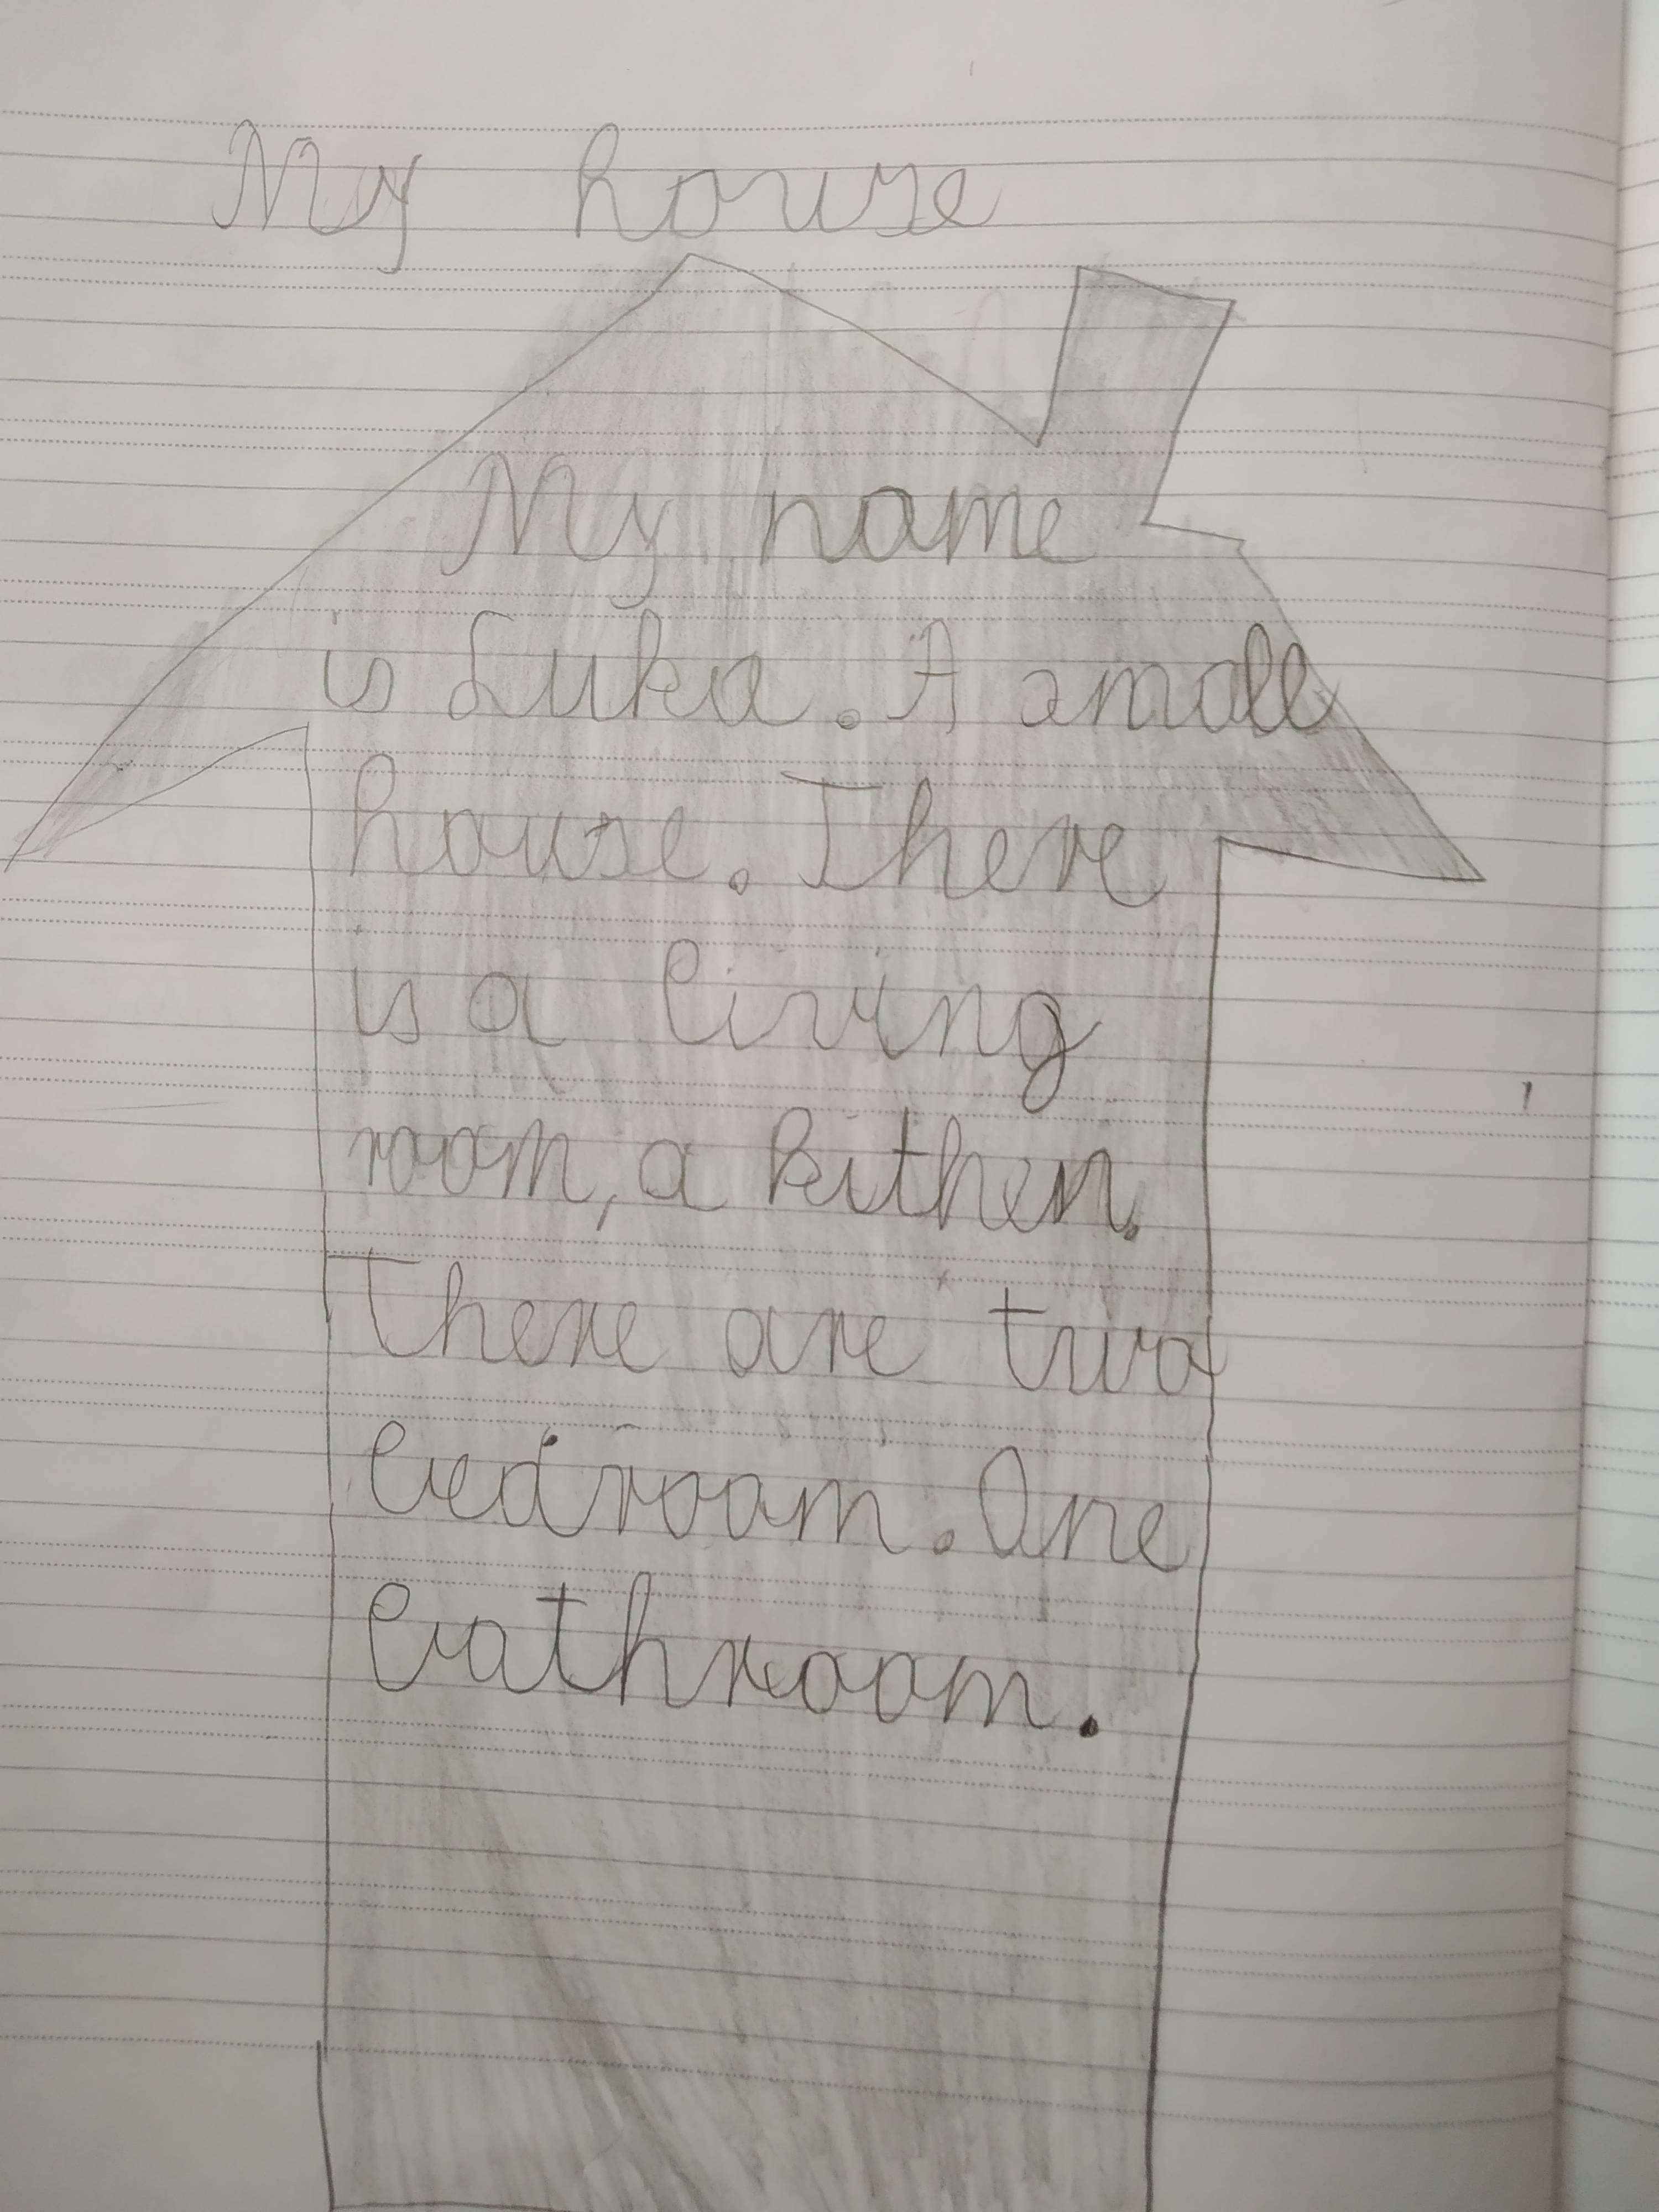 My house
My name
is Luka. A small
house. There
is a living
room, a kithen.
There are two
bedroom. One
bathroom.